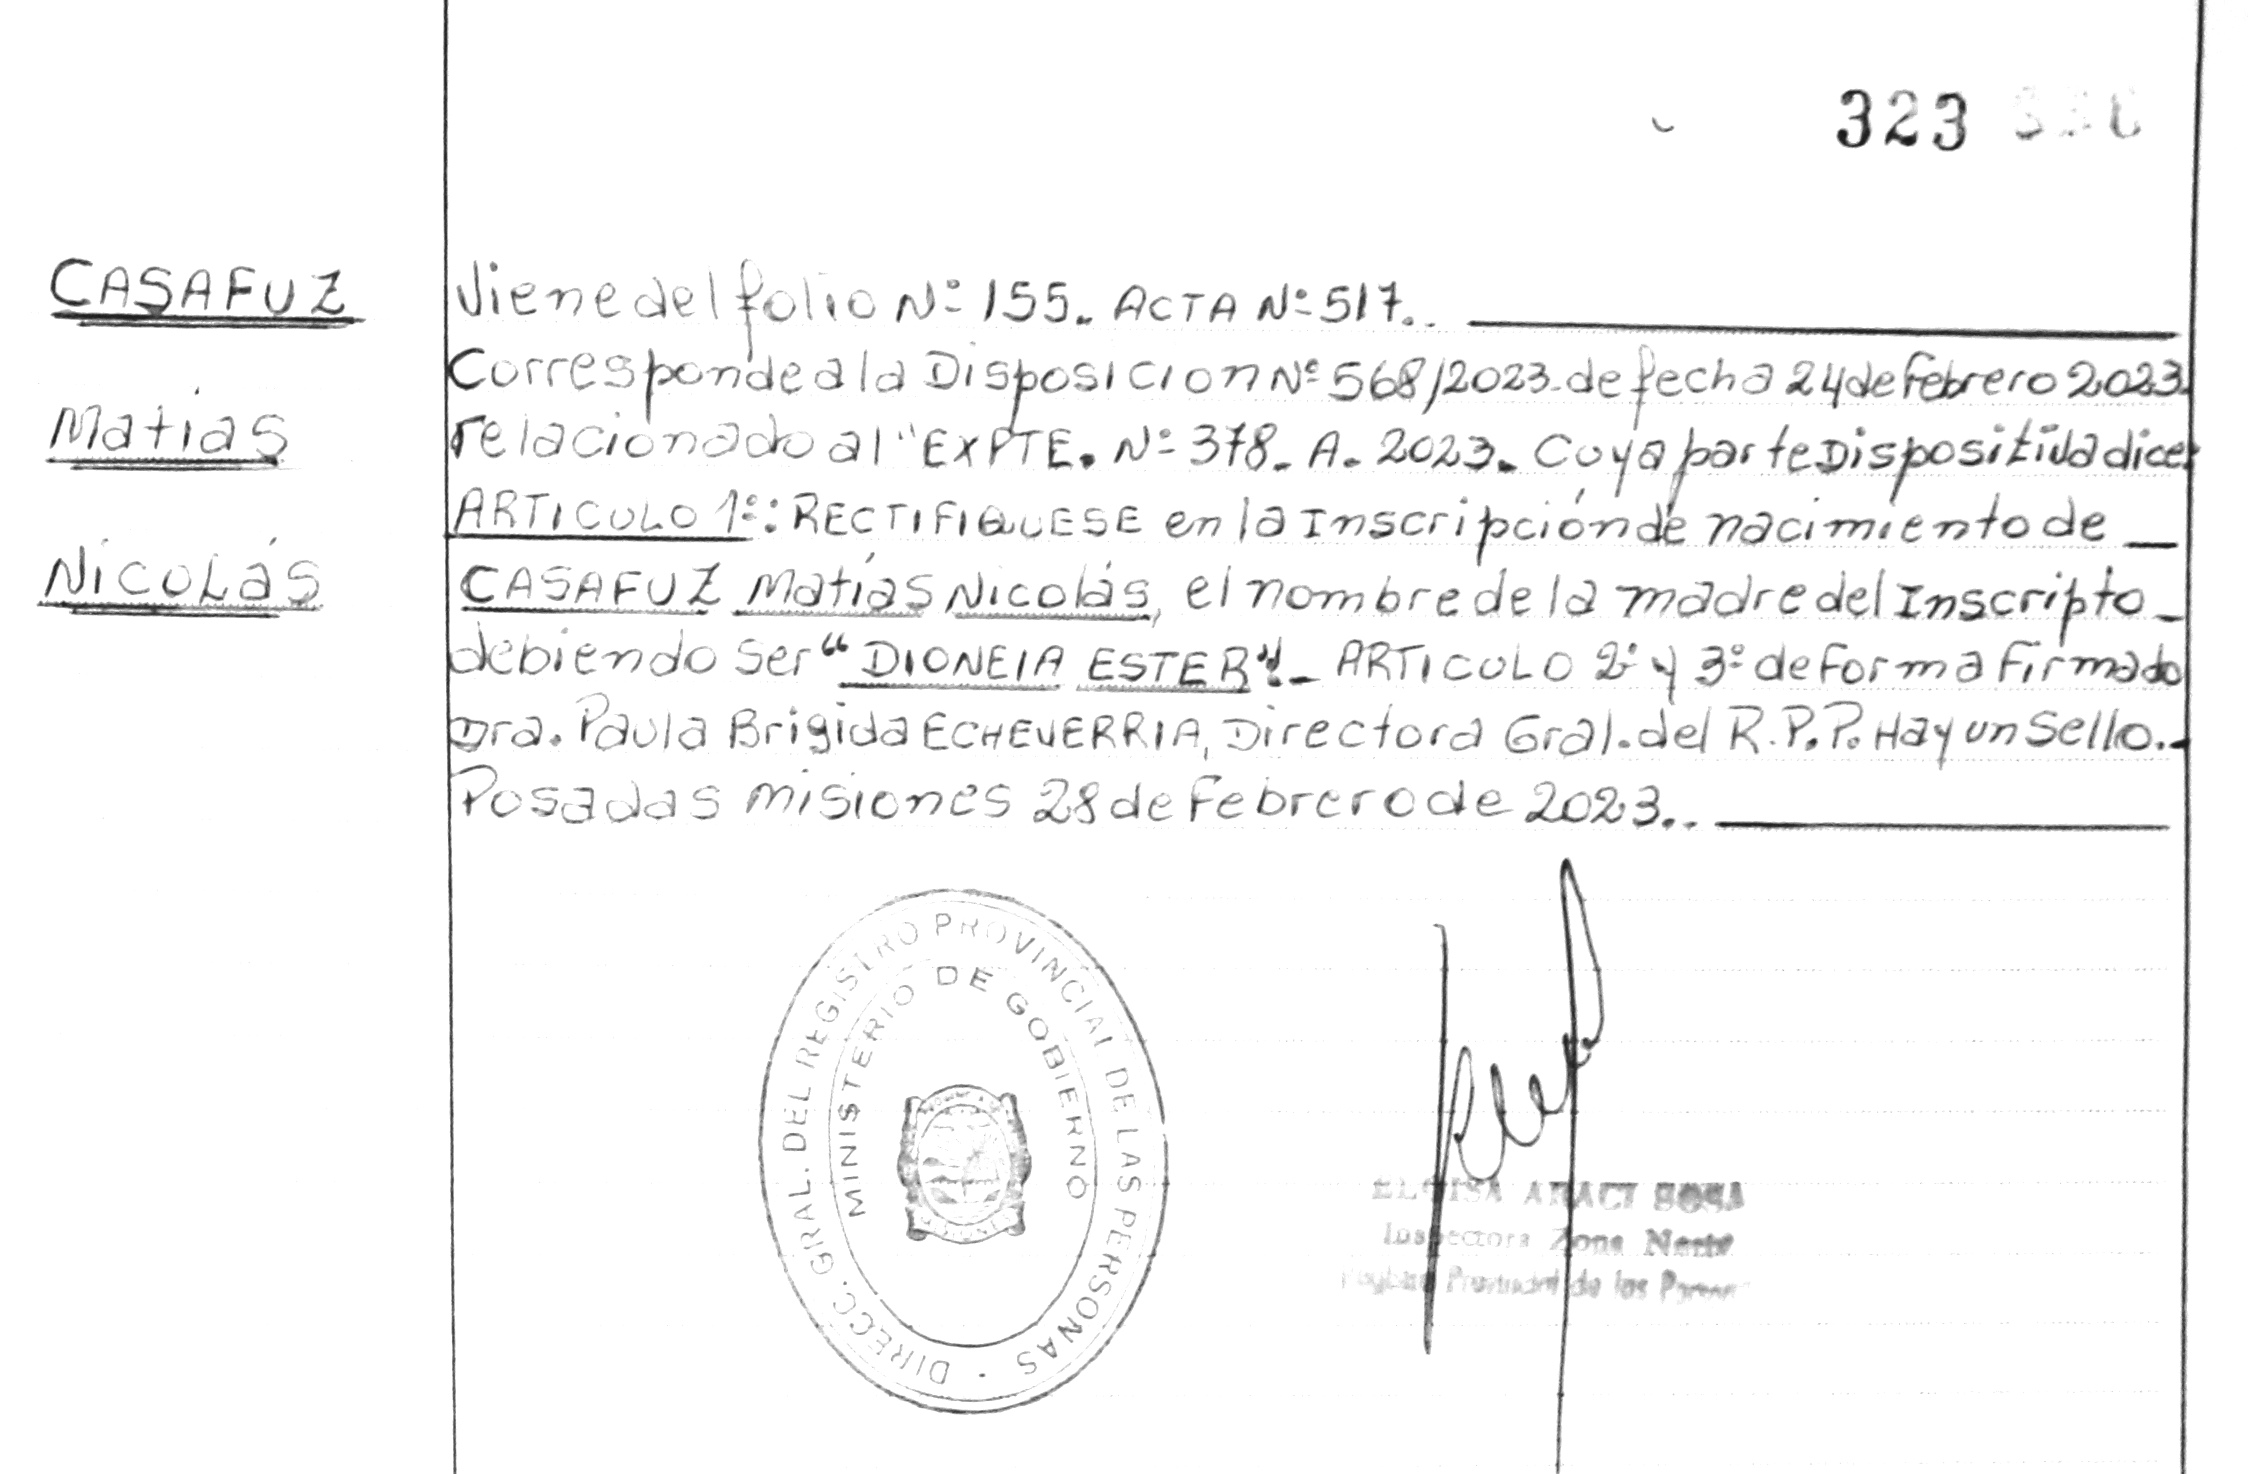 323
CASAFUZ
Matías
Nicolás
Viene del folio Nº 155. ACTA Nº 517..
Corresponde a la Disposicion Nº 568/2023. de fecha 24 de Febrero 2023.
relacionado al "EXPTE. Nº 378. A. 2023. Cuya parte Dispositiva dice:
ARTICULO 1º: RECTIFIQUESE en la Inscripción de nacimiento de
CASAFUZ Matías Nicolás, el nombre de la madre del Inscripto
debiendo ser "DIONEIA ESTER".- ARTICULO 2º y 3º de Forma Firmado
Dra. Paula Brigida ECHEVERRIA, Directora Gral. del R.P.P. Hay un Sello.-
Posadas misiones 28 de Febrero de 2023..
DIRECC. GRAL. DEL REGISTRO PROVINCIAL DE LAS PERSONAS
MINISTERIO DE GOBIERNO
ELOISA ARACI SOSA
Inspectora Zona Norte
Provincial de las